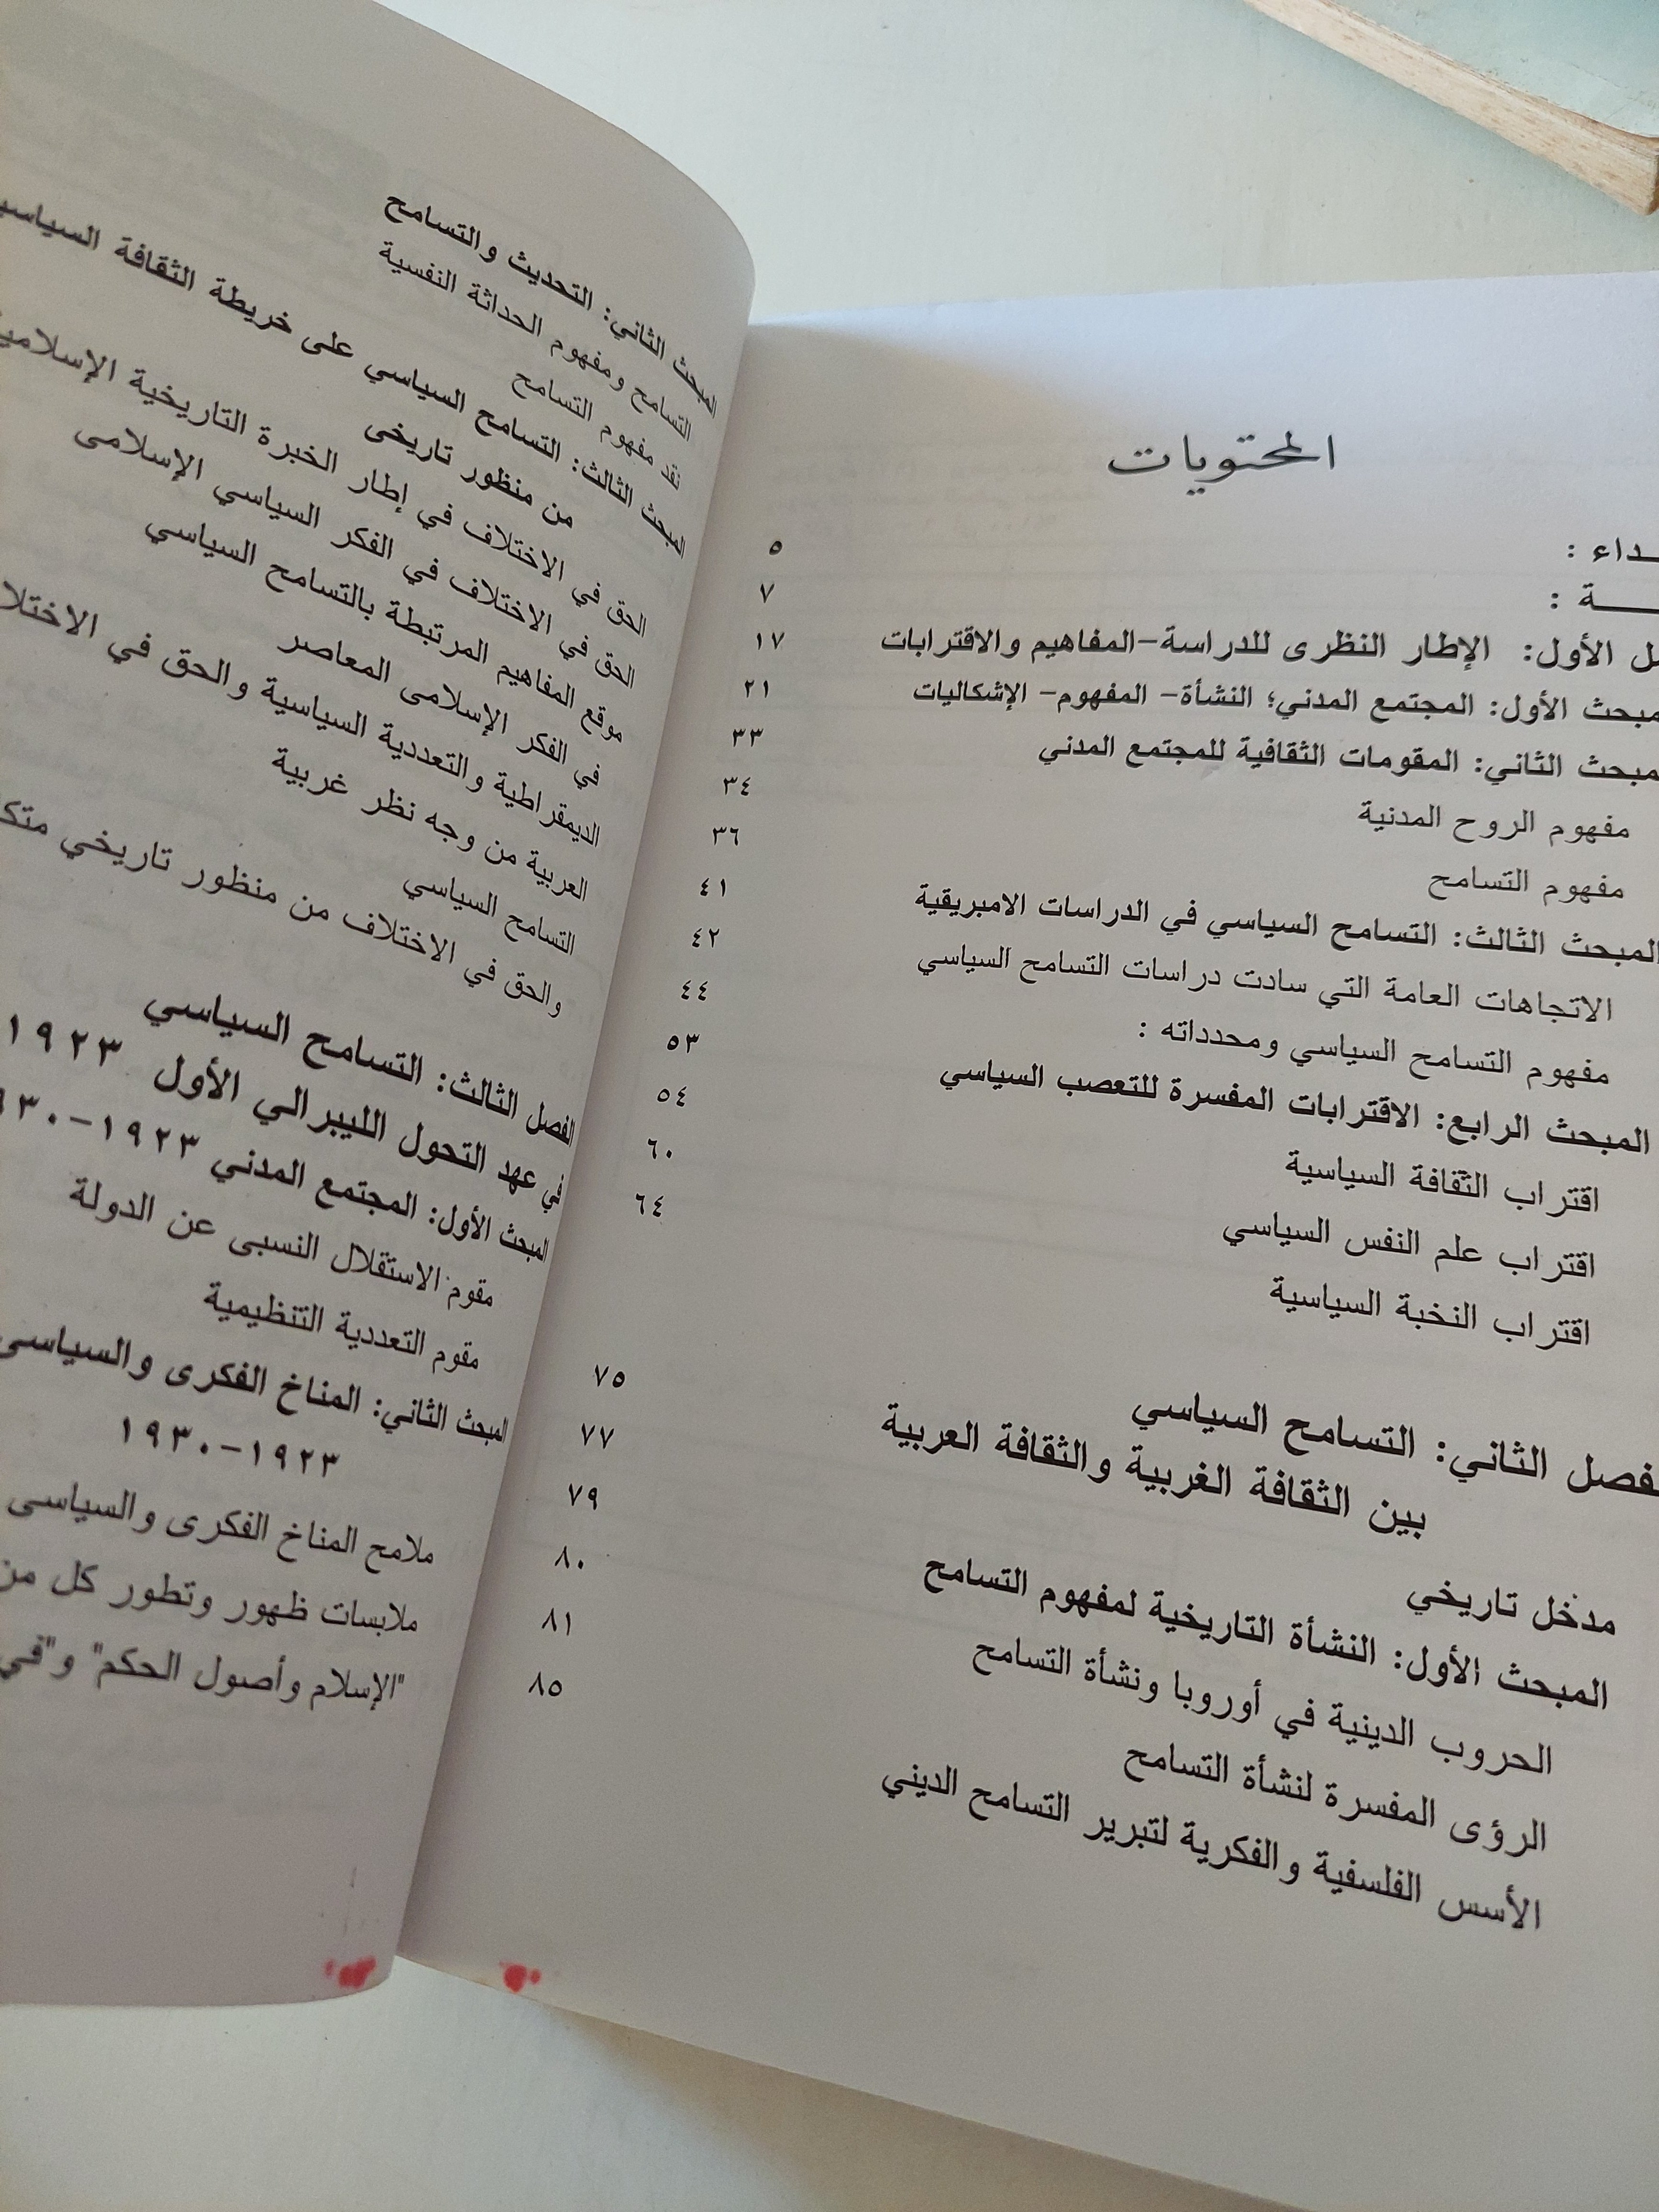 المحتويات
ـداء : ٥
ـة : ٧
ل الأول: الإطار النظرى للدراسة-المفاهيم والاقترابات ١٧
مبحث الأول: المجتمع المدني؛ النشأة- المفهوم- الإشكاليات ٢١
مبحث الثاني: المقومات الثقافية للمجتمع المدني ٣٣
مفهوم الروح المدنية ٣٤
مفهوم التسامح ٣٦
المبحث الثالث: التسامح السياسي في الدراسات الامبريقية ٤١
الاتجاهات العامة التي سادت دراسات التسامح السياسي ٤٢
مفهوم التسامح السياسي ومحدداته : ٤٤
المبحث الرابع: الاقترابات المفسرة للتعصب السياسي ٥٣
اقتراب الثقافة السياسية ٥٤
اقتراب علم النفس السياسي ٦٠
اقتراب النخبة السياسية ٦٤
فصل الثاني: التسامح السياسي
بين الثقافة الغربية والثقافة العربية ٧٥
مدخل تاريخي ٧٧
المبحث الأول: النشأة التاريخية لمفهوم التسامح ٧٩
الحروب الدينية في أوروبا ونشأة التسامح ٨٠
الرؤى المفسرة لنشأة التسامح ٨١
الأسس الفلسفية والفكرية لتبرير التسامح الديني ٨٥
المبحث الثاني: التحديث والتسامح
التسامح ومفهوم الحداثة النفسية
نقد مفهوم التسامح
المبحث الثالث: التسامح السياسي على خريطة الثقافة السياسي
من منظور تاريخى
الحق في الاختلاف في إطار الخبرة التاريخية الإسلامي
الحق في الاختلاف في الفكر السياسي الإسلامى
موقع المفاهيم المرتبطة بالتسامح السياسي
في الفكر الإسلامى المعاصر
الديمقراطية والتعددية السياسية والحق في الاختلا
العربية من وجه نظر غربية
التسامح السياسي
والحق في الاختلاف من منظور تاريخي متكا
الفصل الثالث: التسامح السياسي
في عهد التحول الليبرالي الأول ١٩٢٣
المبحث الأول: المجتمع المدني ١٩٢٣-٩٣٠
مقوم الاستقلال النسبى عن الدولة
مقوم التعددية التنظيمية
المبحث الثاني: المناخ الفكرى والسياسى
١٩٢٣-١٩٣٠
ملامح المناخ الفكرى والسياسى
ملابسات ظهور وتطور كل من
"الإسلام وأصول الحكم" و"في